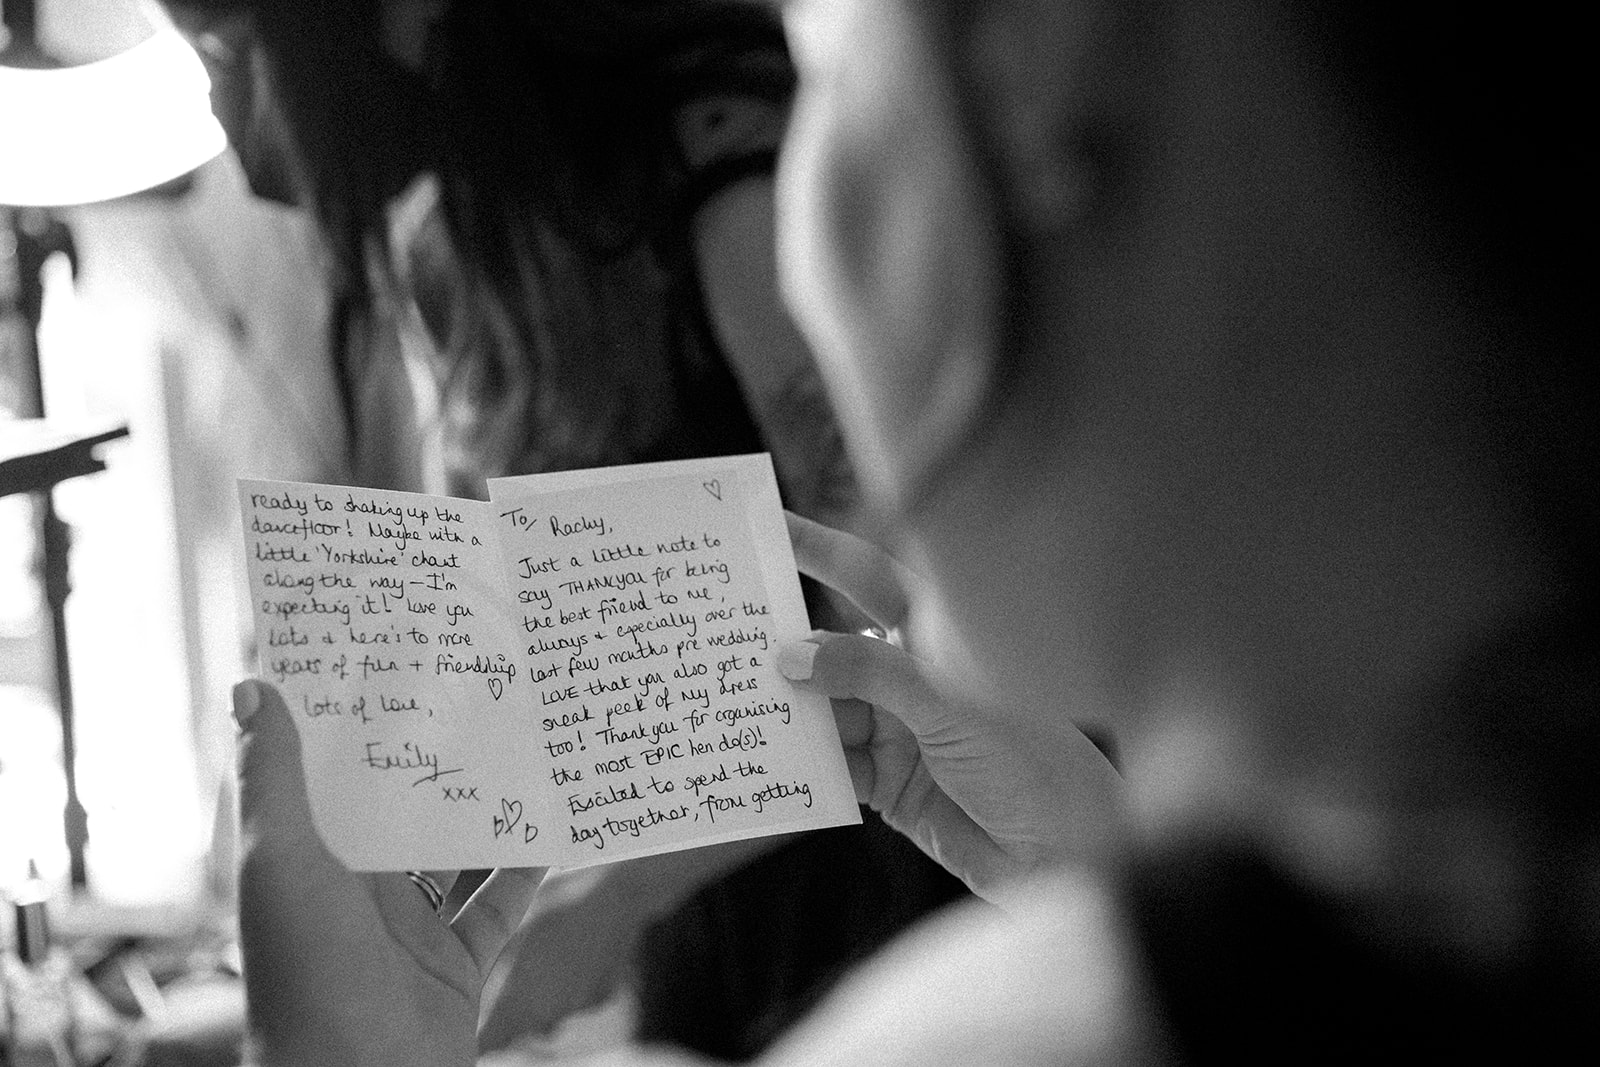 To/ Rachy,
Just a little note to
say THANKYOU for being
the best friend to me,
always + especially over the
last few months pre wedding.
LOVE that you also got a
sneak peek of my dress
too! Thankyou for organising
the most EPIC hen do(s)!
Excited to spend the
day together, from getting
ready to shaking up the
dancefloor! Maybe with a
little 'Yorkshire' chant
along the way - I'm
expecting it! Love you
lots & here's to more
years of fun + friendship
Lots of love,
Emily
xxx